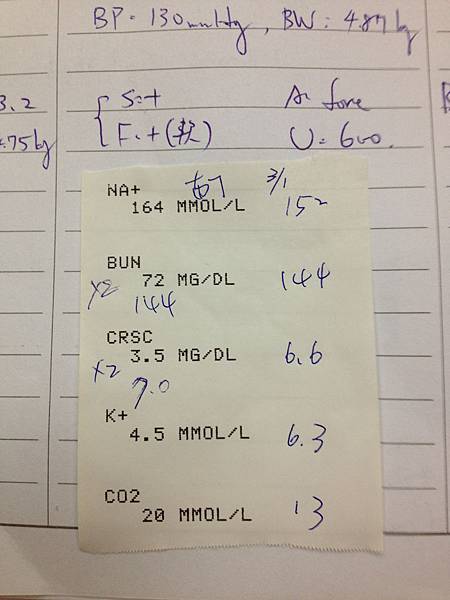 BP = 130 mmHg, BW: 4.87 kg
3.2
S: +
4.75 kg
F: + (軟)
U = 600.
NA+ 3/1
164 MMOL/L 152
BUN
72 MG/DL 144
x2 144
CRSC
3.5 MG/DL 6.6
x2 7.0
K+
4.5 MMOL/L 6.3
CO2
20 MMOL/L 13